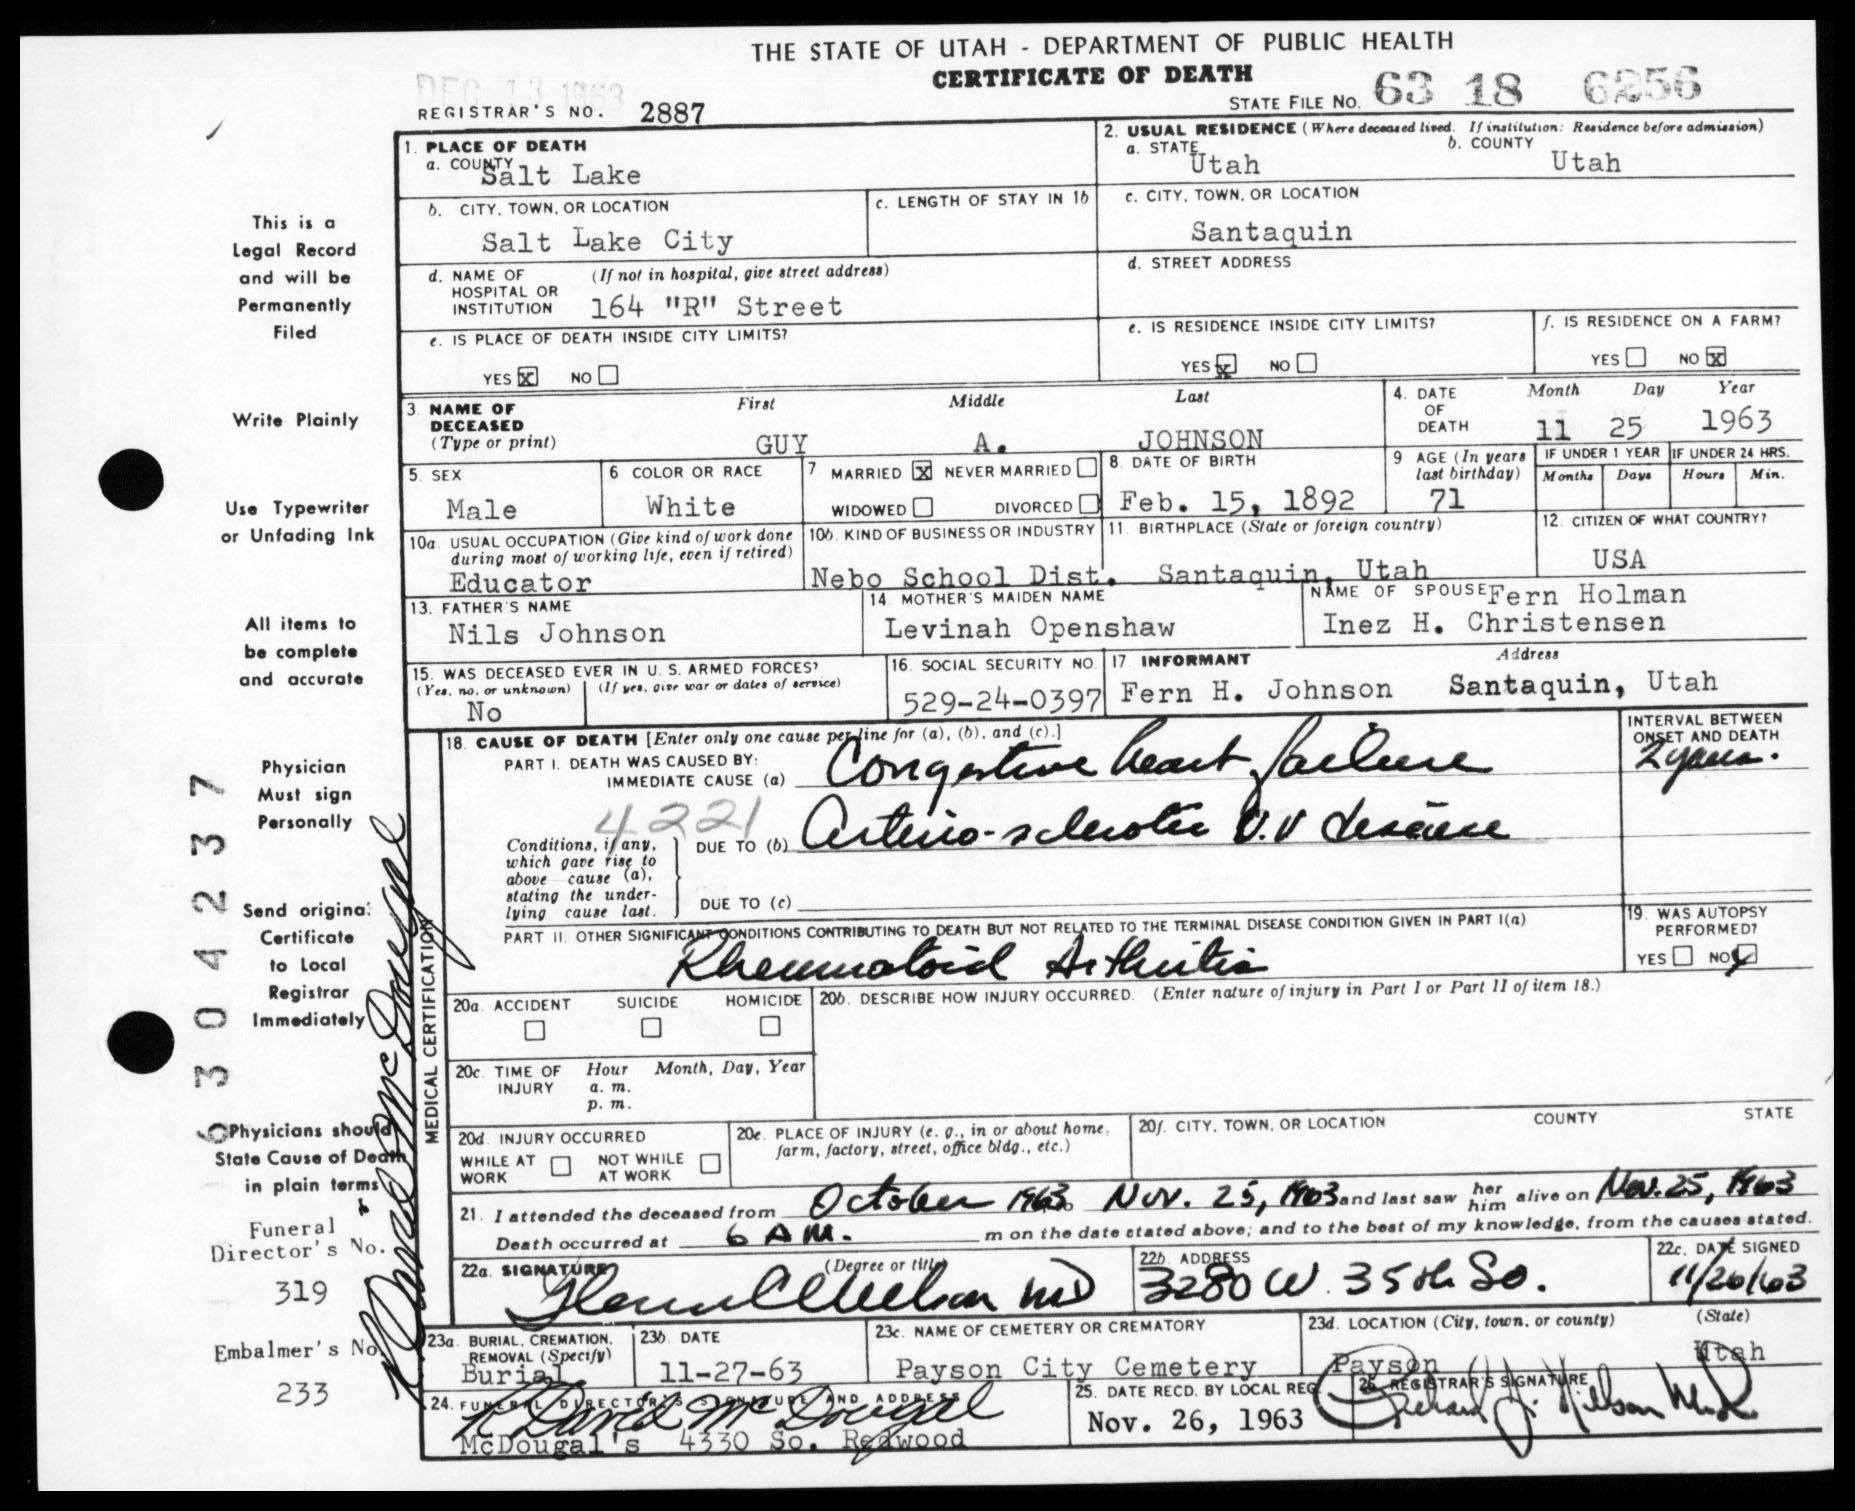 THE STATE OF UTAH - DEPARTMENT OF PUBLIC HEALTH
CERTIFICATE OF DEATH
DEC 13 1963
REGISTRAR'S NO. 2887
STATE FILE NO. 63 18 6256
1. PLACE OF DEATH
a. COUNTY
Salt Lake
2. USUAL RESIDENCE (Where deceased lived. If institution: Residence before admission)
a. STATE Utah
b. COUNTY Utah
b. CITY, TOWN, OR LOCATION
Salt Lake City
c. LENGTH OF STAY IN 1b
c. CITY, TOWN, OR LOCATION
Santaquin
d. NAME OF HOSPITAL OR INSTITUTION
(If not in hospital, give street address)
164 "R" Street
d. STREET ADDRESS
e. IS PLACE OF DEATH INSIDE CITY LIMITS?
YES X NO
e. IS RESIDENCE INSIDE CITY LIMITS?
YES X NO
f. IS RESIDENCE ON A FARM?
YES NO X
3. NAME OF DECEASED
(Type or print)
First Middle Last
GUY A. JOHNSON
4. DATE OF DEATH
Month Day Year
11 25 1963
5. SEX
Male
6 COLOR OR RACE
White
7 MARRIED X NEVER MARRIED
WIDOWED DIVORCED
8. DATE OF BIRTH
Feb. 15, 1892
9 AGE (In years last birthday)
71
IF UNDER 1 YEAR
Months Days
IF UNDER 24 HRS.
Hours Min.
10a. USUAL OCCUPATION (Give kind of work done during most of working life, even if retired)
Educator
10b. KIND OF BUSINESS OR INDUSTRY
Nebo School Dist.
11. BIRTHPLACE (State or foreign country)
Santaquin, Utah
12. CITIZEN OF WHAT COUNTRY?
USA
13. FATHER'S NAME
Nils Johnson
14. MOTHER'S MAIDEN NAME
Levinah Openshaw
NAME OF SPOUSE Fern Holman
Inez H. Christensen
15. WAS DECEASED EVER IN U. S. ARMED FORCES?
(Yes, no, or unknown) (If yes, give war or dates of service)
No
16. SOCIAL SECURITY NO.
529-24-0397
17. INFORMANT Address
Fern H. Johnson Santaquin, Utah
MEDICAL CERTIFICATION
18. CAUSE OF DEATH [Enter only one cause per line for (a), (b), and (c).]
PART I. DEATH WAS CAUSED BY:
IMMEDIATE CAUSE (a) Congestive heart failure
INTERVAL BETWEEN ONSET AND DEATH
2 years.
4221
Conditions, if any, which gave rise to above cause (a), stating the underlying cause last.
DUE TO (b) Arterio-sclerotic V.V disease
DUE TO (c)
PART II. OTHER SIGNIFICANT CONDITIONS CONTRIBUTING TO DEATH BUT NOT RELATED TO THE TERMINAL DISEASE CONDITION GIVEN IN PART I(a)
Rheumatoid Arthritis
19. WAS AUTOPSY PERFORMED?
YES NO X
20a. ACCIDENT SUICIDE HOMICIDE
20b. DESCRIBE HOW INJURY OCCURRED. (Enter nature of injury in Part I or Part II of item 18.)
20c. TIME OF INJURY
Hour Month, Day, Year
a. m.
p. m.
20d. INJURY OCCURRED
WHILE AT WORK NOT WHILE AT WORK
20e. PLACE OF INJURY (e. g., in or about home, farm, factory, street, office bldg., etc.)
20f. CITY, TOWN, OR LOCATION COUNTY STATE
21. I attended the deceased from October 1963 Nov. 25, 1963 and last saw her him alive on Nov. 25, 1963
Death occurred at 6 AM. m on the date stated above; and to the best of my knowledge, from the causes stated.
22a. SIGNATURE (Degree or title)
Nelson MD
22b. ADDRESS
3280 W. 35th So.
22c. DATE SIGNED
11/26/63
23a. BURIAL, CREMATION, REMOVAL (Specify)
Burial
23b. DATE
11-27-63
23c. NAME OF CEMETERY OR CREMATORY
Payson City Cemetery
23d. LOCATION (City, town, or county) (State)
Payson Utah
24. FUNERAL DIRECTOR'S SIGNATURE AND ADDRESS
R David McDougal
McDougal's 4330 So. Redwood
25. DATE RECD. BY LOCAL REG.
Nov. 26, 1963
26. REGISTRAR'S SIGNATURE
Richard J. Nielson
This is a
Legal Record
and will be
Permanently
Filed
Write Plainly
Use Typewriter
or Unfading Ink
All items to
be complete
and accurate
Physician
Must sign
Personally
Send original
Certificate
to Local
Registrar
Immediately
Physicians should
State Cause of Death
in plain terms
Funeral
Director's No.
319
Embalmer's No.
233
6304237
R David McDougal